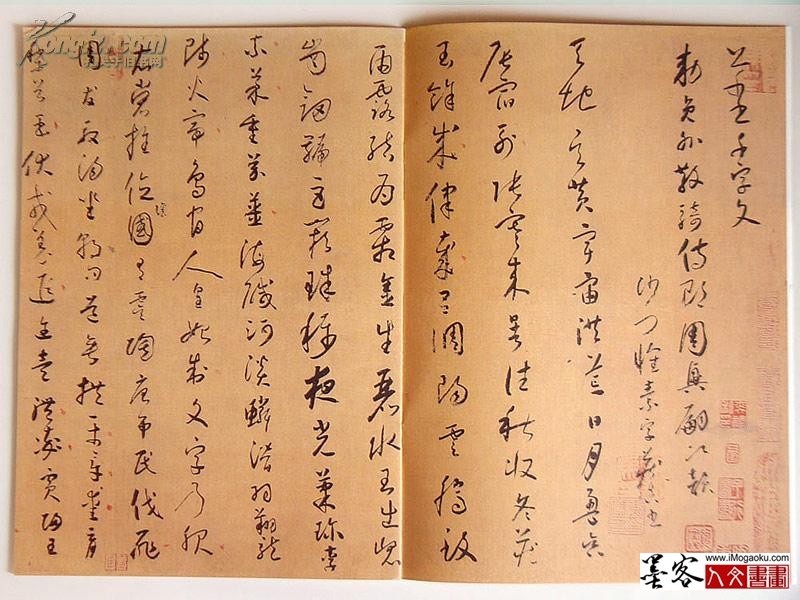 草書千字文
勅員外散騎侍郎周興嗣次韻
沙門懷素字藏真書
天地玄黃宇宙洪荒日月盈昃
辰宿列張寒來暑往秋收冬藏
閏餘成律歲呂調陽雲騰致
雨露結為霜金生麗水玉出崑
崗劍號巨闕珠稱夜光菓珍李
柰菜重芥薑海鹹河淡鱗潛羽翔龍
師火帝鳥官人皇始制文字乃服
衣裳推位讓國有虞陶唐弔民伐罪
周發殷湯坐朝問道垂拱平章愛育
黎首臣伏戎羌遐邇壹體率賓歸王
www.iMogaoku.com
墨客人文書畫